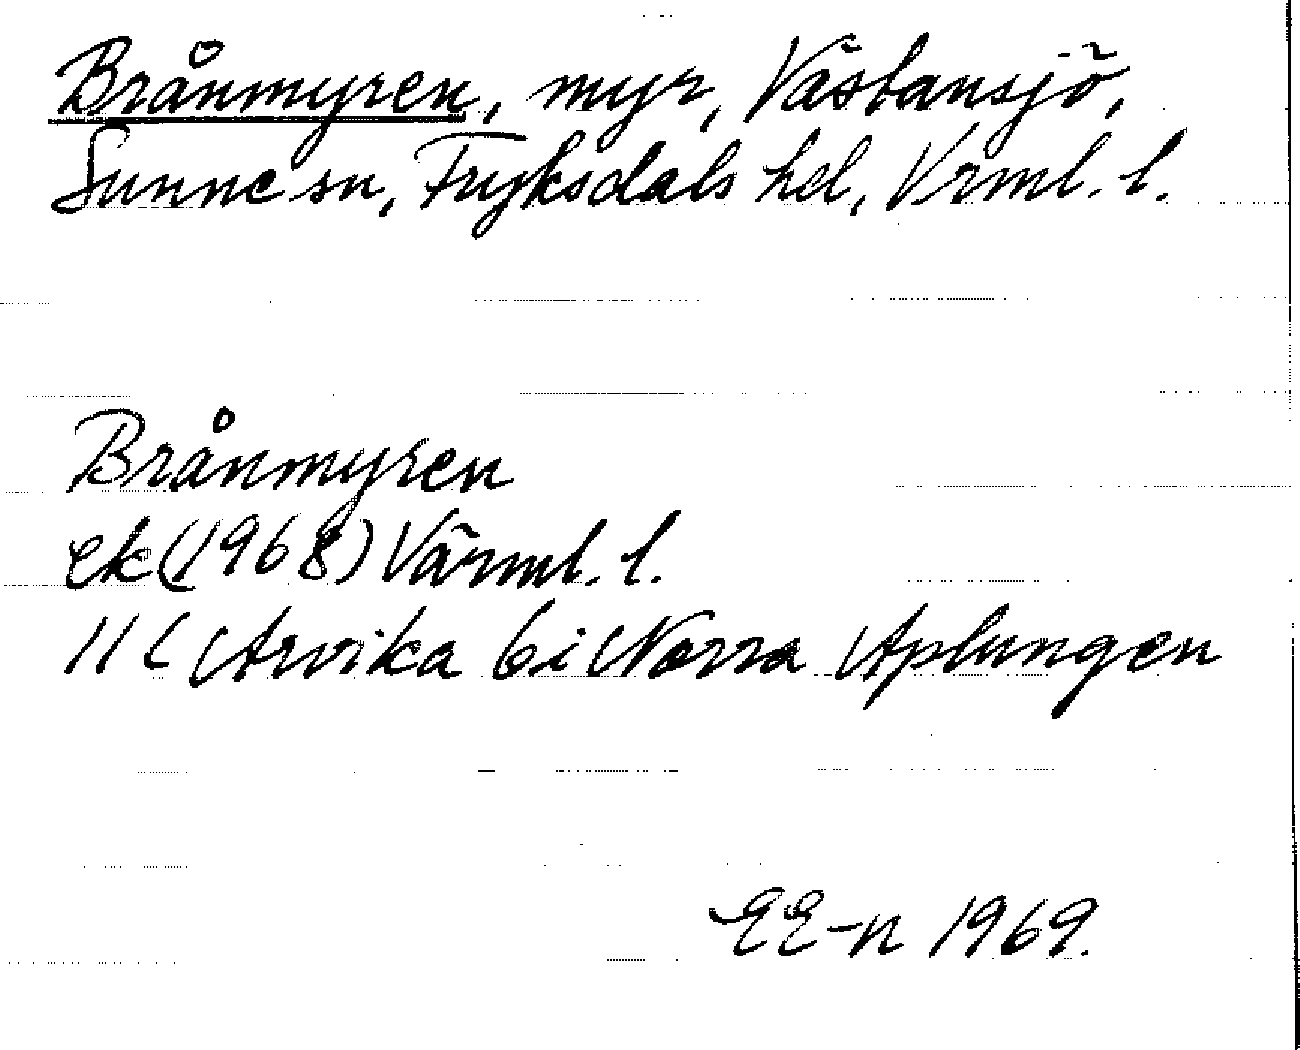 Brånmyren, myr, Västansjö,
Sunne sn, Fryksdals hd, Vrml. l.
Brånmyren
ek (1968) Värml. l.
11C Arvika 6i Norra Aplungen
EE-n 1969.